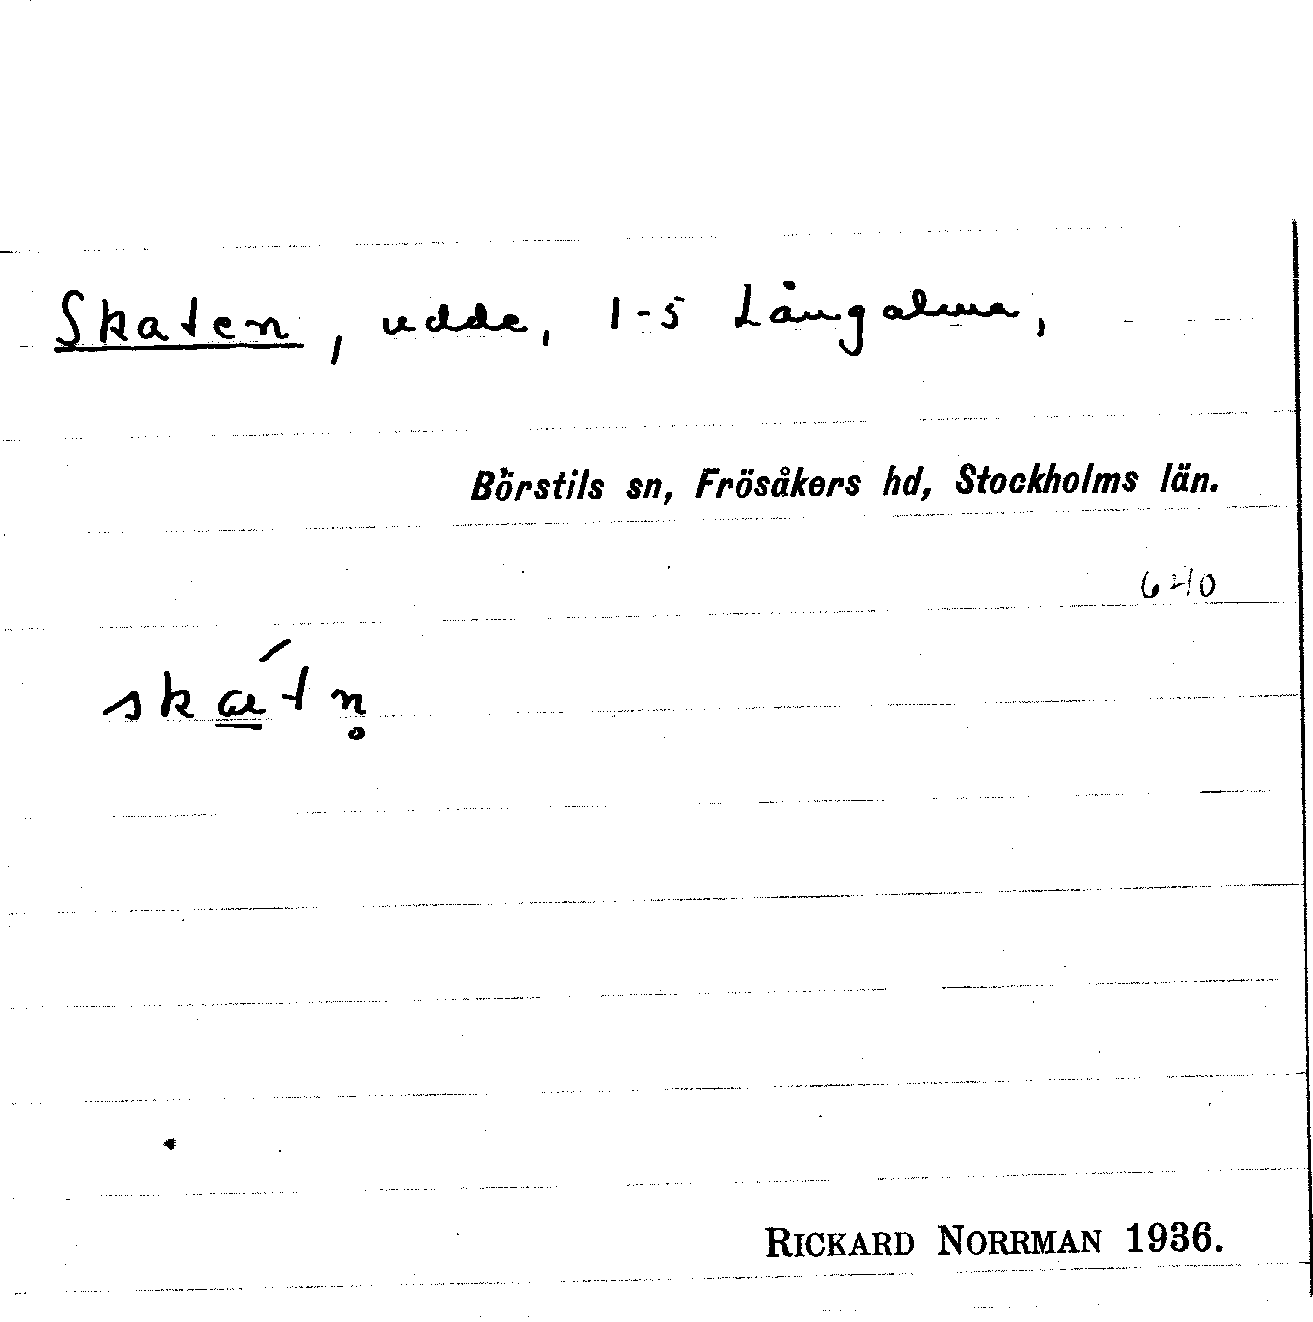 Skaten, udde, 1-5 Långalma,
Börstils sn, Frösåkers hd, Stockholms län.
640
skatn̥
RICKARD NORRMAN 1936.